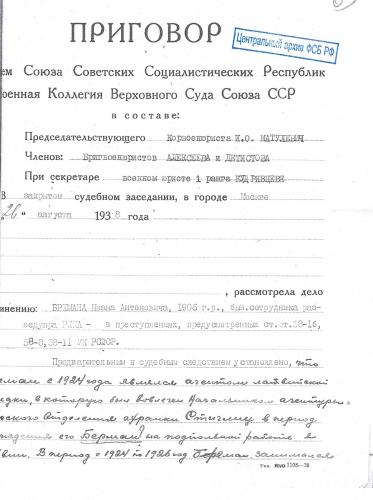 ПРИГОВОР
Центральный архив ФСБ РФ
ем Союза Советских Социалистических Республик
оенная Коллегия Верховного Суда Союза ССР
в составе:
Председательствующего Корвоенюриста И.О. МАТУЛЕВИЧ
Членов: Бригвоенюристов АЛЕКСЕЕВА и ДЕТИСТОВА
При секретаре военном юристе 1 ранга КУДРЯВЦЕВЕ
В закрытом судебном заседании, в городе Москве
„26“ августа 1938 года
, рассмотрела дело
инению: БРЕМАНА Ивана Антоновича, 1906 г.р., быв.сотрудника раз-
ведупра РККА - в преступлениях, предусмотренных ст.ст.58-1б,
58-8,58-11 УК РСФСР.
Предварительным и судебным следствием установлено, что
с 1924 года являлся агентом латвийской
едки, в которую был вовлечен начальником агентурн
ского отделения охранки Стиглиц в период
его Берман на подпольной работе в
вии. В период с 1924 по 1926 год Бреман занимался